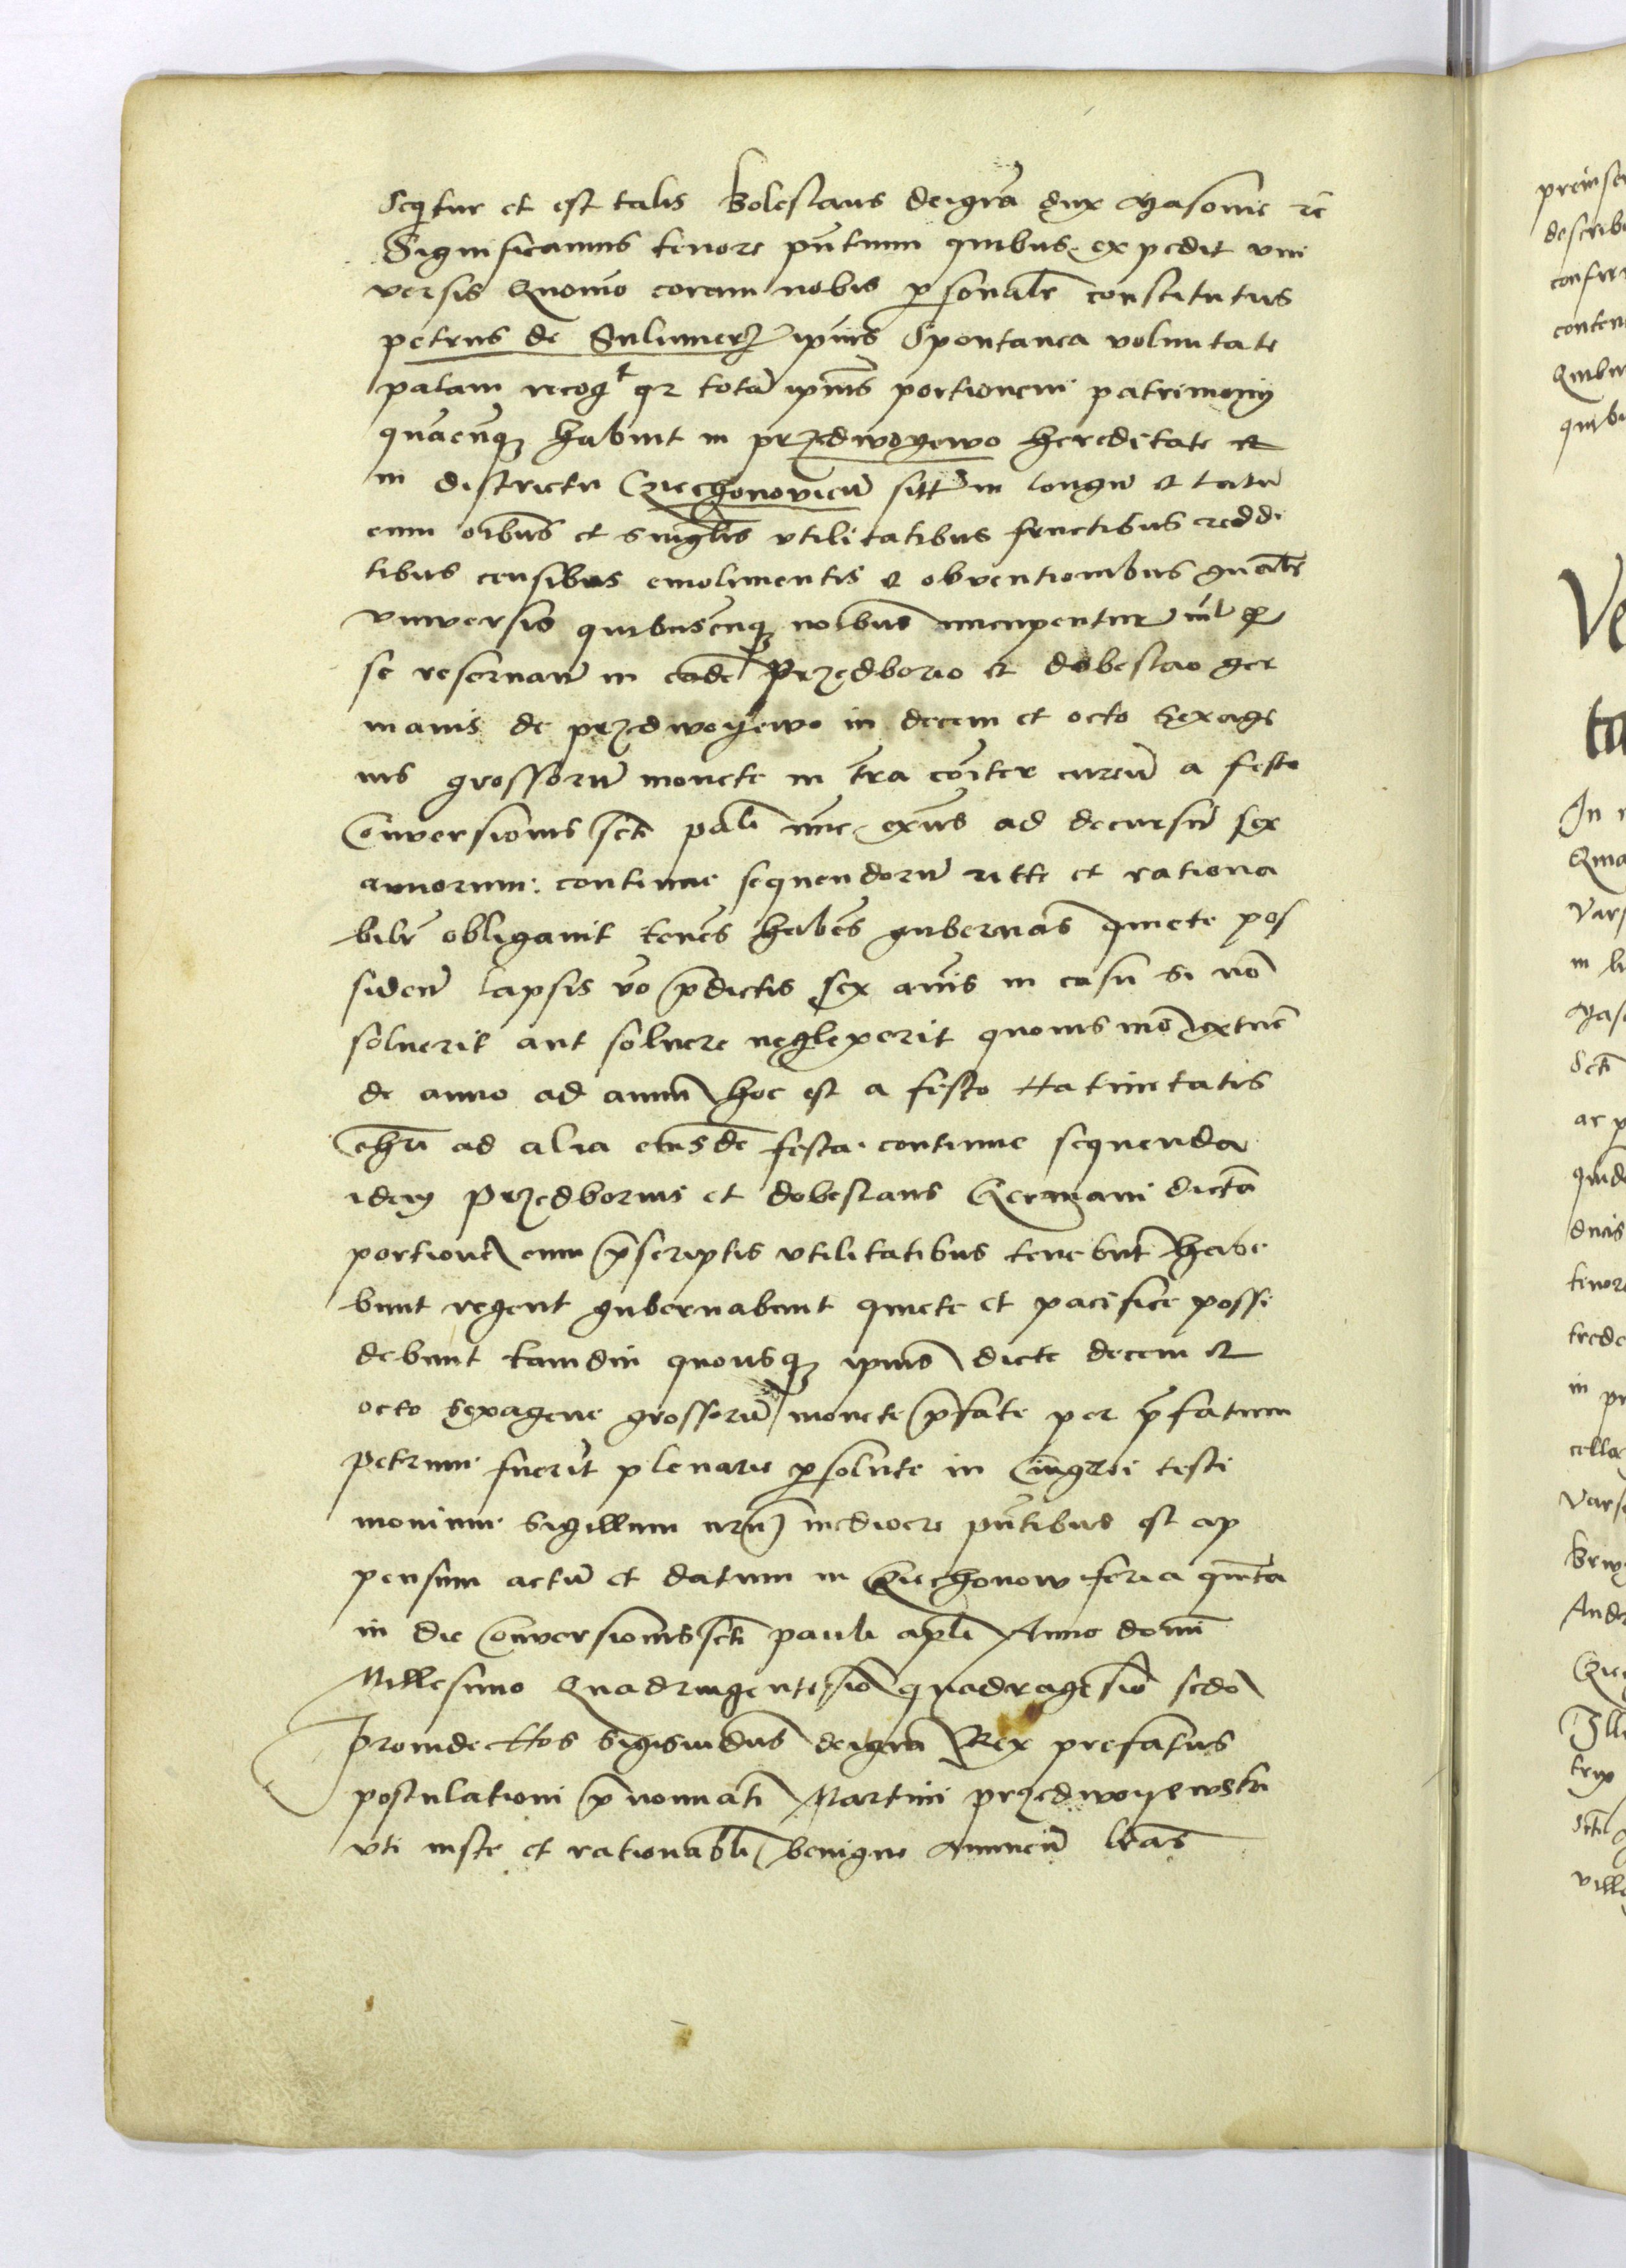 Seqitur et est talis Boleslaus dei gra dux Masovie rc
Significamus tenore pntium quibus expedit vni
versis Quomo coram nobis psonalr constitutus
petrus de Sulimerz ipius Spontanea voluntate
palam recogt qr tota ipius portionem patrimonij
quacuq habuit in przedwoyewo hereditate et
in districtu Cziechonovien sitt in longu et latu
cum oibus et singlis vtilitatibus fructibus reddi
tibus censibus emolimentis et obventionibus gnalr
vniversis quibuscuq noibus nuncupentur nil p
se reservan in eade Przedborio et dobeslao ger
manis de przedwoyewo in decem et octo Sexage
nis grossoru monete in tra coiter curen a festo
Conversionis scti pauli nuc exns ad decursu sex
annorum continue sequendoru ritte et rationa
bilr obligavit tenens habens gubernans quiete pos
siden lapsis vo pdictis sex annis in casu si no
solverit aut solvere neglexerit quovis mo extunc
de anno ad annu hoc est a festo Nativitatis
chri ad alia eiusde festa continue sequenda
idem Przedborius et dobeslaus Germani dicta
portione cum pscriptis vtilitatibus tenebunt habe
bunt regent gubernabunt quiete et pacifice possi
debunt tamdiu quousq ipius dicte decem et
octo sexagene grossoru monete pfate per pfatum
petrum fuerit plenarie psolute in Cuius rei testi
monium Sigillum nrum mediocre pntibus est ap
pensum actu et datum in Cziechonow feria quinta
in die Conversionis scti pauli apli Anno domi
Millesimo Quadringentesimo quadragesimo scdo
Proinde Nos Sigismdus dei gra Rex prefatus
postulationi pnominati Martini przedwoyewski
vti iuste et rationabili benigne annuen lras